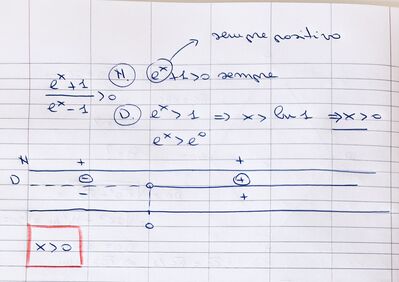 sempre positivo
(e^x+1)/(e^x-1) > 0 N. e^x+1>0 sempre
D. e^x>1 ⇒ x> ln 1 ⇒ x>0
e^x>e^0
N + +
D - +
- +
0
x>0